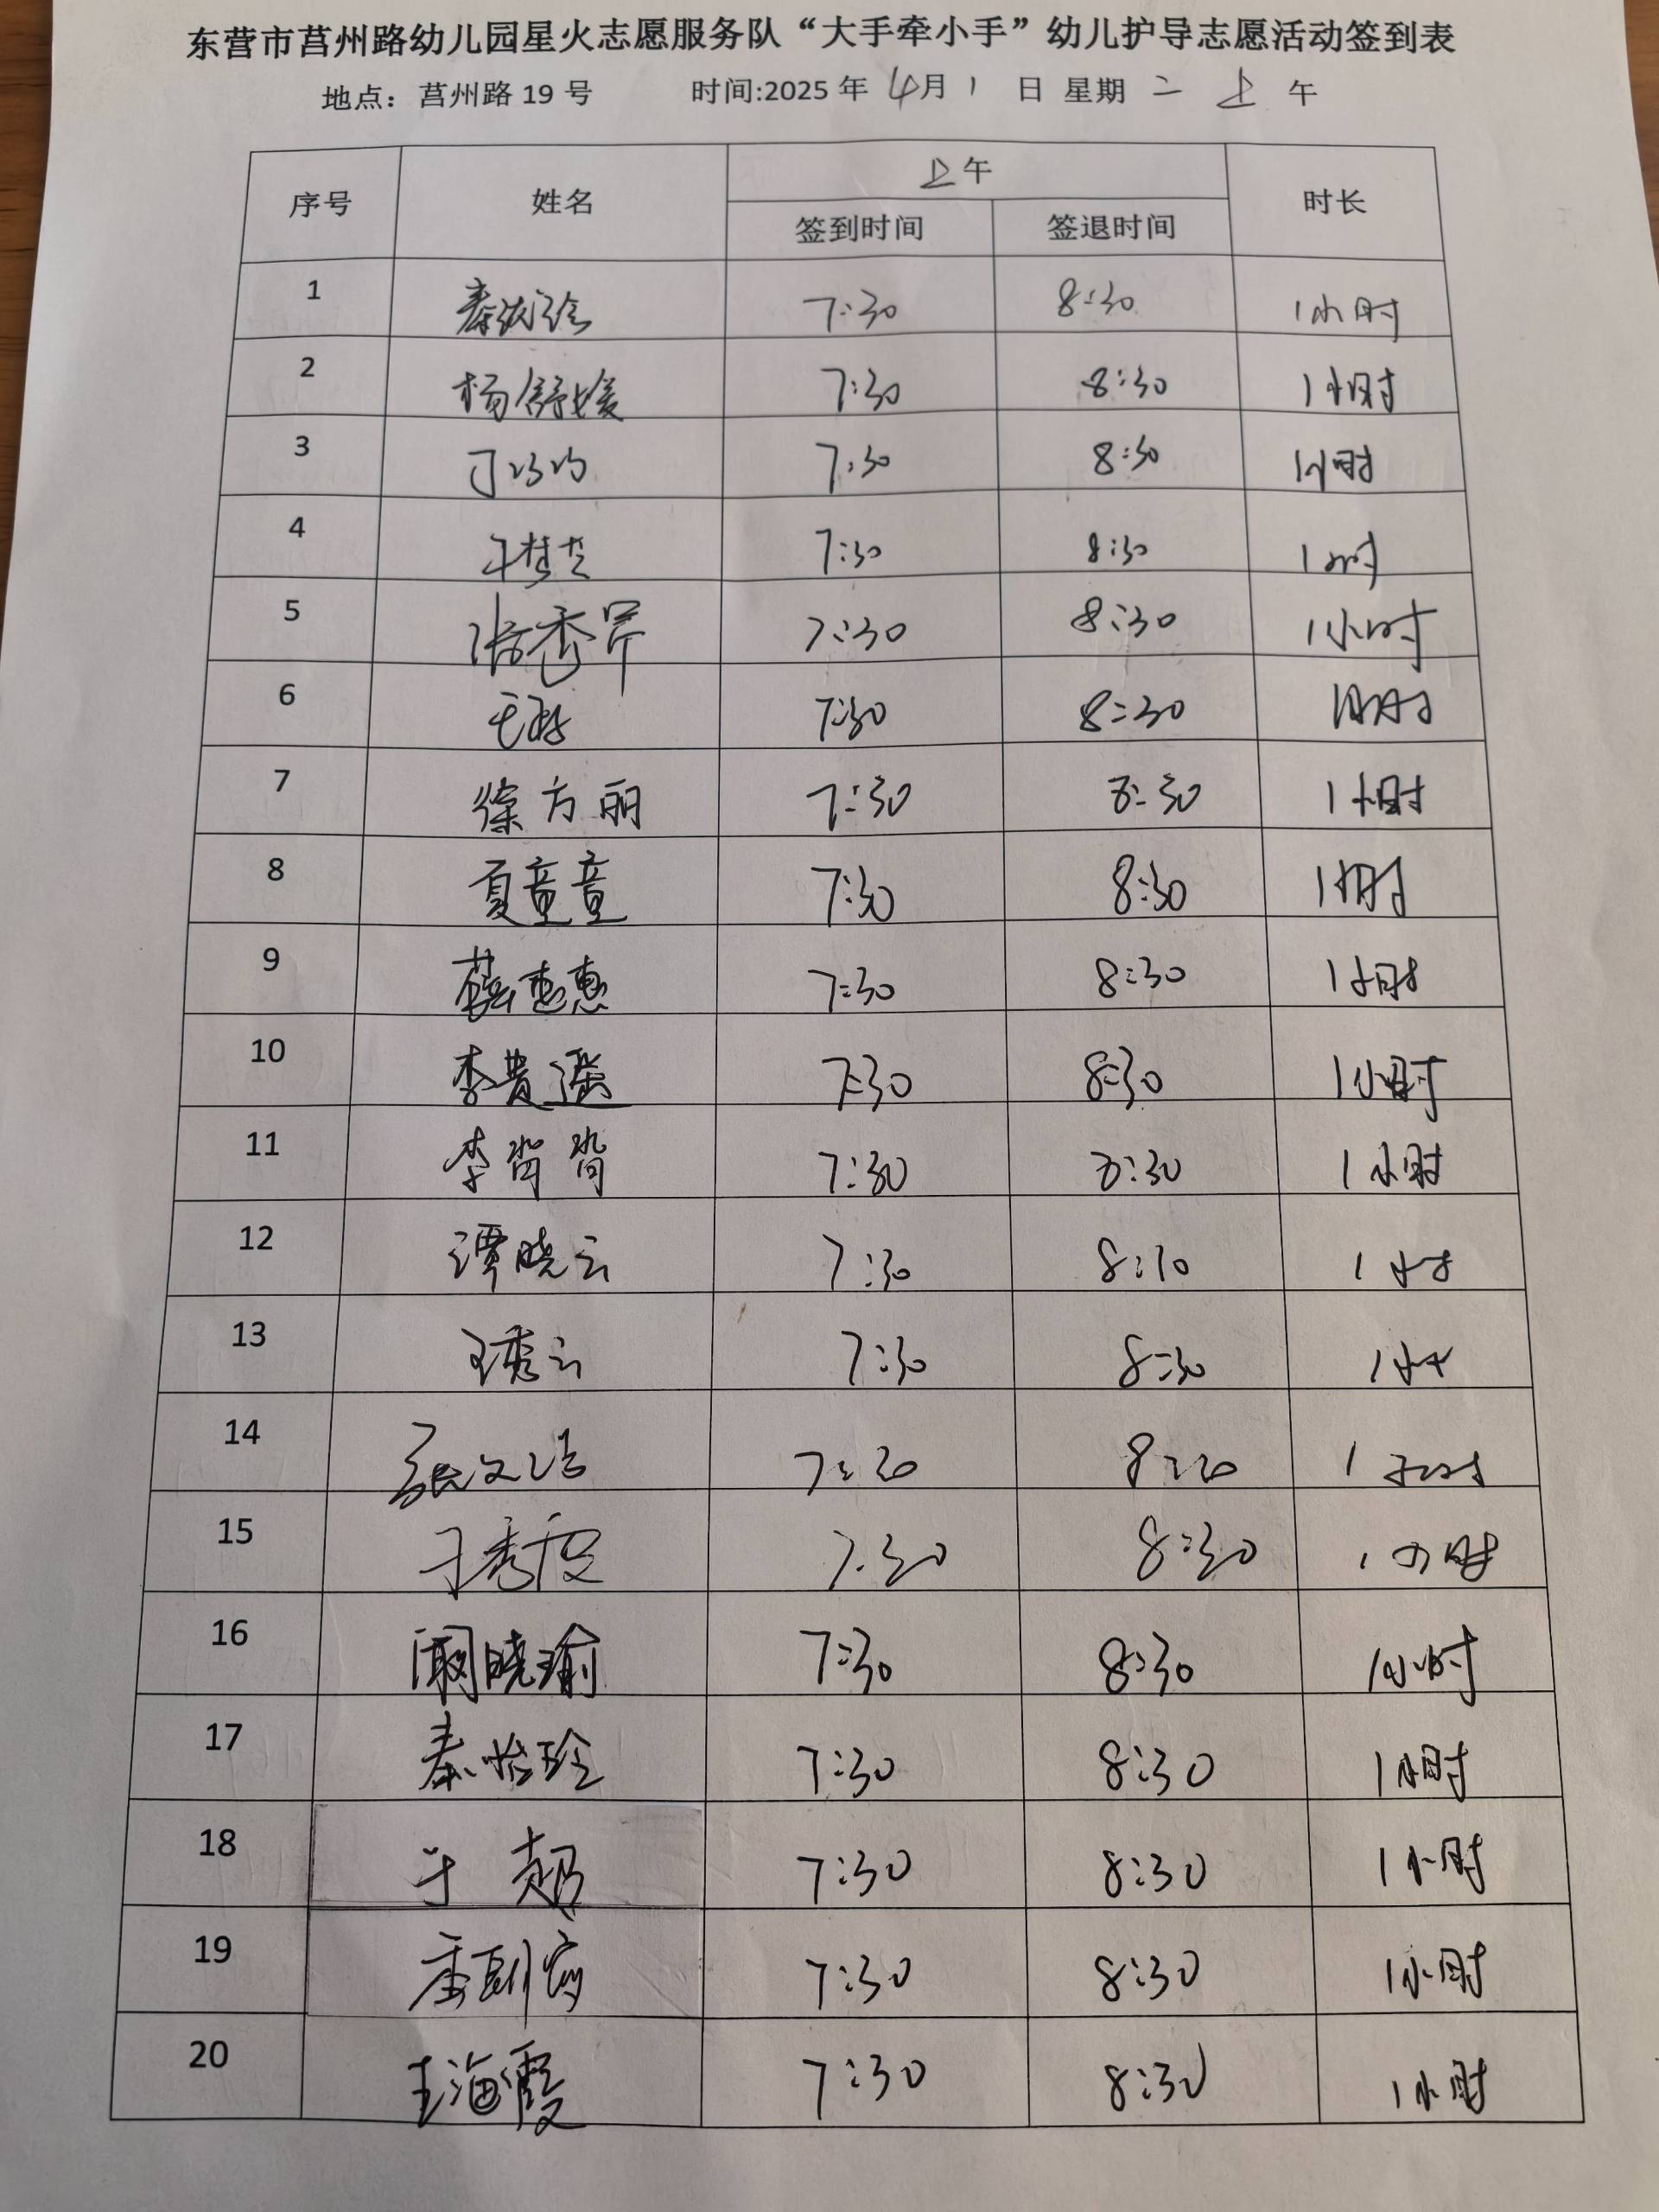 东营市莒州路幼儿园星火志愿服务队“大手牵小手”幼儿护导志愿活动签到表
地点：莒州路 19 号 时间:2025 年 4月 1 日 星期 二 上 午
序号 姓名 上午 时长
签到时间 签退时间
1 7:30 8:30 1小时
2 杨舒媛 7:30 8:30 1小时
3 7:30 8:30 1小时
4 于梦兰 7:30 8:30 1小时
5 张秀芹 7:30 8:30 1小时
6 7:30 8:30 1小时
7 徐方丽 7:30 8:30 1小时
8 夏童童 7:30 8:30 1小时
9 薛惠惠 7:30 8:30 1小时
10 李贵瑶 7:30 8:30 1小时
11 李肖肖 7:30 8:30 1小时
12 谭晓云 7:30 8:30 1小时
13 王秀云 7:30 8:30 1小时
14 张文洁 7:30 8:30 1小时
15 于秀 7:30 8:30 1小时
16 阚晓瑜 7:30 8:30 1小时
17 秦怡玲 7:30 8:30 1小时
18 于超 7:30 8:30 1小时
19 7:30 8:30 1小时
20 王海霞 7:30 8:30 1小时